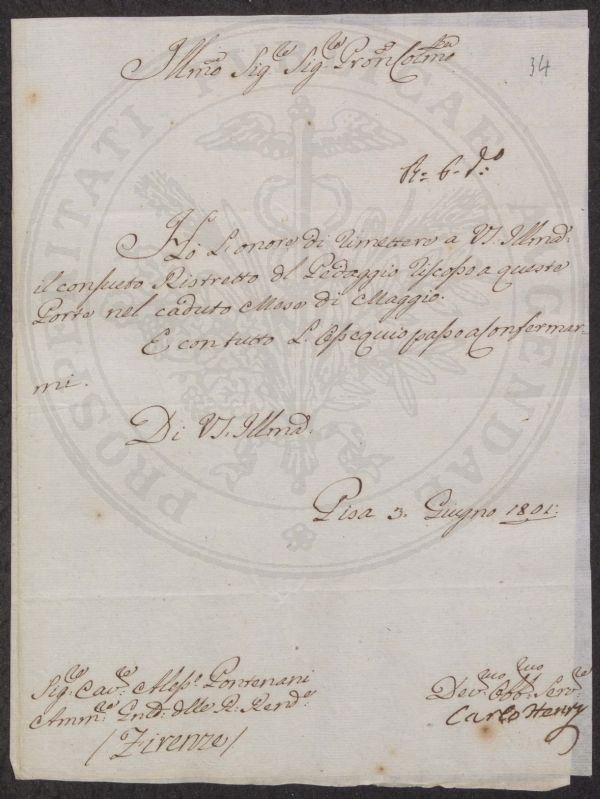 Illmo Sigre Sigre Pron Colmo
34
R= 6. do
Ho L'onore di Rimettere a VS. Illma.
il consueto Ristretto del Pedaggio riscosso a queste
Porte nel caduto Mese di Maggio.
E con tutto L'Ossequio passo a Confermar-
mi.
Di VS. Illma.
Pisa 3. Giugno 1801:
Sigre Cave Aless.o Pontenani
Ammre Gnle delle R. Rend.e
/Firenze/
Devmo Obbmo Servre
Carlo Henry
PROSPERITATI PUBLICAE AUGENDAE